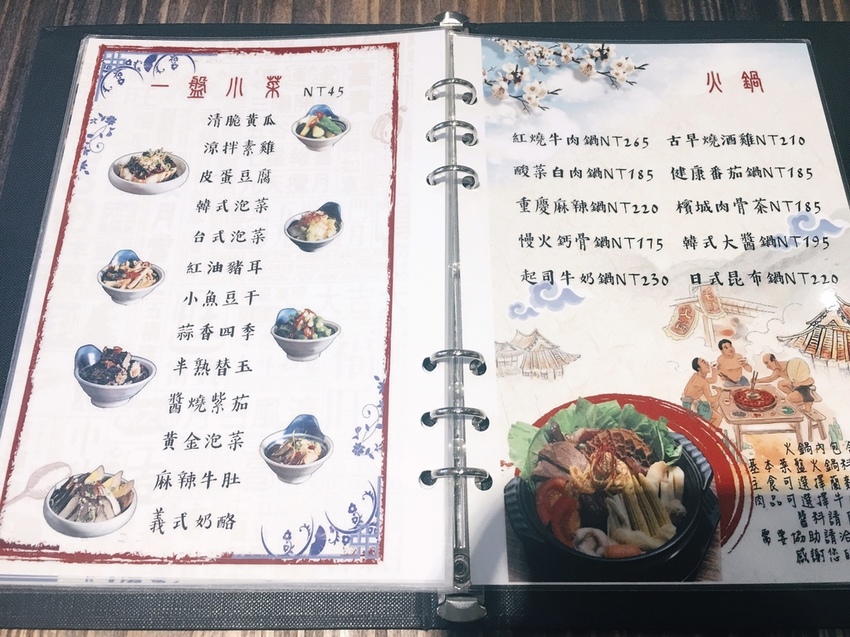 一盤小菜 NT45
清脆黃瓜
涼拌素雞
皮蛋豆腐
韓式泡菜
台式泡菜
紅油豬耳
小魚豆干
蒜香四季
半熟替玉
醬燒紫茄
黃金泡菜
麻辣牛肚
義式奶酪
火鍋
紅燒牛肉鍋NT265 古早燒酒雞NT210
酸菜白肉鍋NT185 健康番茄鍋NT185
重慶麻辣鍋NT220 檳城肉骨茶NT185
慢火鈣骨鍋NT175 韓式大醬鍋NT195
起司牛奶鍋NT230 日式昆布鍋NT220
火鍋內包含
基本菜盤火鍋料
主食可選擇
肉品可選擇牛
醬料請
需要協助請洽
感謝您